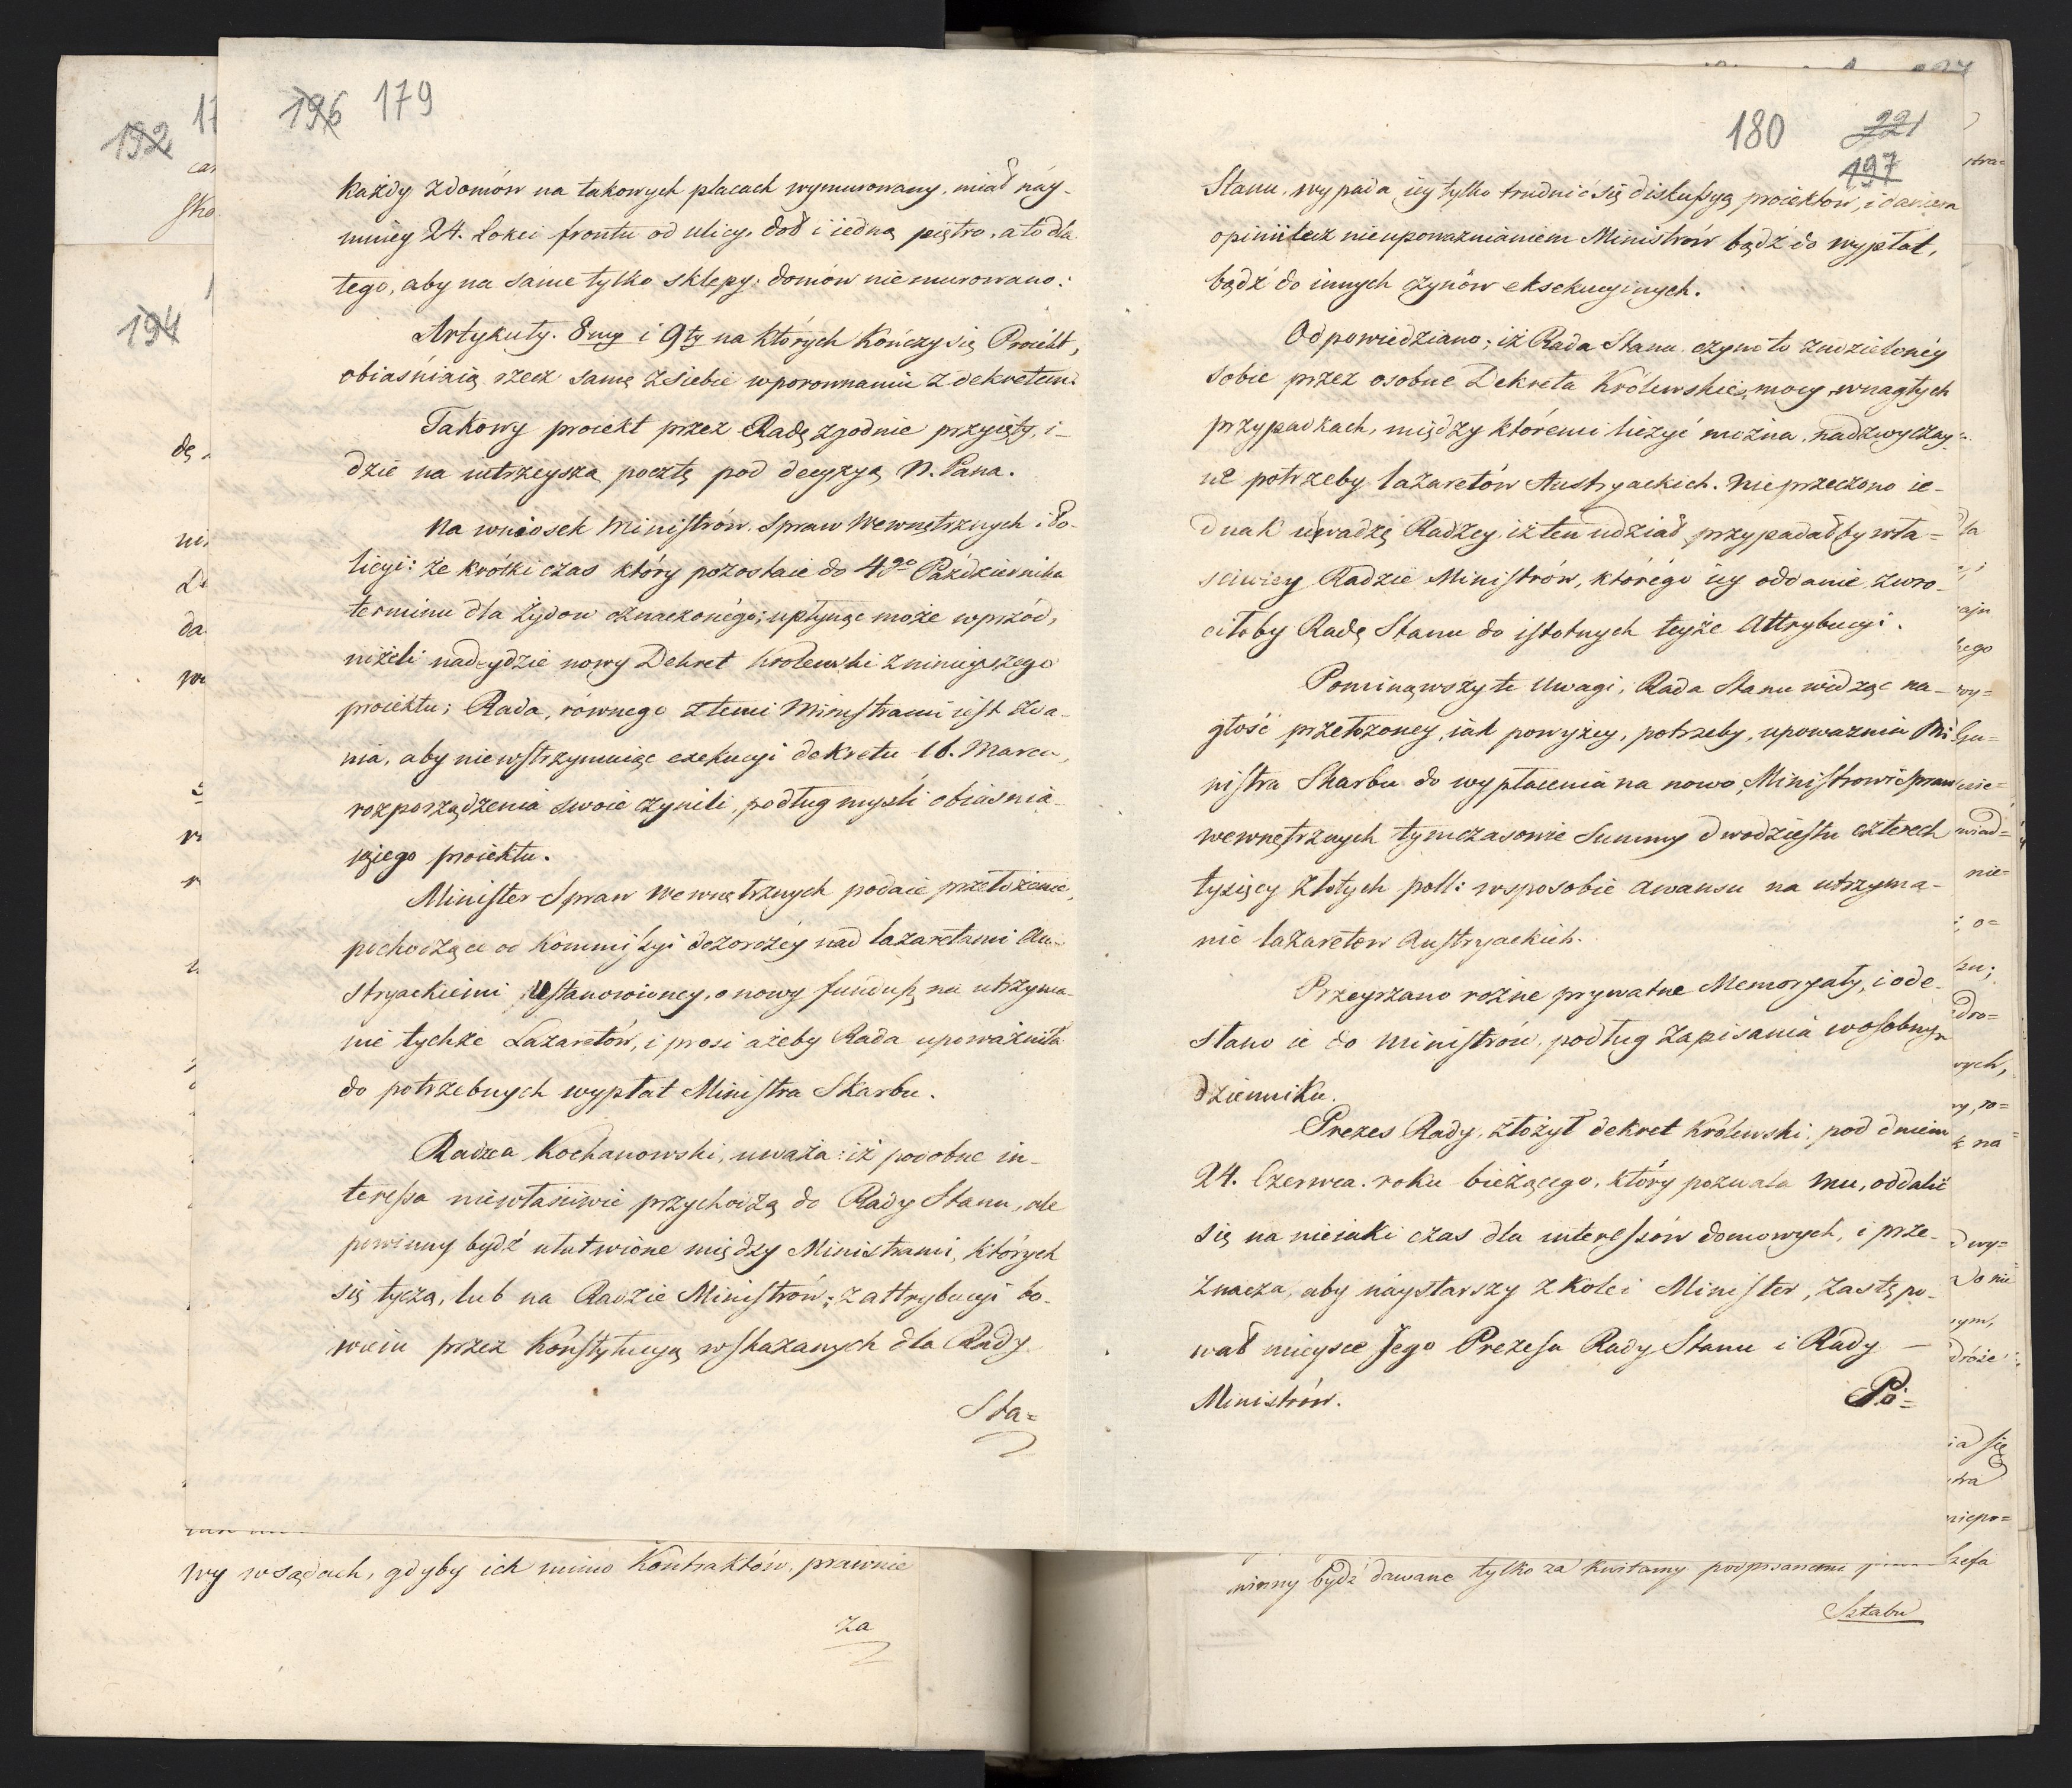 196 179
każdy z domów na takowych placach wymurowany, miał náy-
mniéy 24. Łokci frontu od ulicy, dół i iedną piętro, a to dla
tego, aby na same tylko sklepy, domów nie murowano:
Artykuły. 8my i 9ty na których kończy się Proiekt,
obiaśniaią rzecz samę z siebie w porownaniu z dekretem.
Takowy proiekt przez Radę zgodnie przyięty, i-
dzie na iutrzeyszą pocztę pod decyzyą N. Pana.
Na wniosek Ministrów Spraw Wewnętrznych i Po-
licyi: że krótki czas który pozostaie do 4go Października
terminu dla Żydow oznaczonégo; upłynąć może wprzód,
niżeli nadeydzie nowy Dekret Królewski z ninieyszego
proiektu; Rada, równego z temi Ministrami iest zda-
nia, aby niewstrzymuiąc exekucyi dekretu 16. Marca,
rozporządzenia swoie czynili, podług myśli obiaśnia-
iącego proiektu.
Minister Spraw Wewnętrznych podaie przełożenie,
pochodzące od Kommissyi dozorczéy nad lazaretami Au-
stryackiemi ustanowioney, o nowy fundusz na utrzyma-
nie tychże Lazaretów, i prosi ażeby Rada upoważniła
do potrzebnych wypłat Ministra Skarbu.
Radzca Kochanowski, uważa: iż podobne in-
teressa niewłaściwie przychodzą do Rady Stanu, ale
powinny bydź ułatwione między Ministrami, których
się tyczą, lub na Radzie Ministrów; z attrybucyi bo-
wiem przez Konstytucyą wskazanych dla Rady
Sta=
wy w sądach, gdyby ich mimo Kontraktów, prawnie
za
180 221
197
Stanu, wypada iéy tylko trudnić się diskussyą proiektów, i daniem
opinii lecz nie upoważnianiem Ministrów bądź do wypłat,
bądź do innych czynów eksekucyinych.
Odpowiedziano; iż Rada Stanu czyni to z udzielonéy
sobie przez osobne Dekreta Królewskie, mocy, w nagłych
przypadkach, między któremi liczyć można, nadzwyczay-
ne potrzeby lazaretów Austryackich. Nie przeczono ie-
dnak uwadzę Radzcy, iż ten udział przypadałby wła=
ściwiey Radzie Ministrów, którégo iey oddanie zwro-
ciłoby Radę Stanu do istotnych teyże Attrybucyi.
Pominąwszy te Uwagi, Rada Stanu widząc na-
głość przełożoney, iak powyżey, potrzeby, upoważnia Mi
nistra Skarbu do wypłacenia na nowo, Ministrowi Spraw
wewnętrznych tymczasowie Summy dwudziestu czterech
tysięcy złotych poll: w sposobie awansu na utrzyma-
nie lazaretow Austryackich.
Przeyrzano rożne prywatne Memoryały, i ode-
słano ie do Ministrów, podług zapisania w osobnym
dzienniku.
Prezes Rady, złożył dekret Królewski, pod dniem
24. Czerwca. roku bieżącego, który pozwala mu, oddalić
się na nieiaki czas dla interessów domowych, i prze-
znacza, aby náystarszy z kolei Minister, zastępo-
wał mieysce Jego Prezesa Rady Stanu i Rady —
Ministrów.
Po=
winny bydź dawane tylko za kwitamy podpisanemi
Sztabu